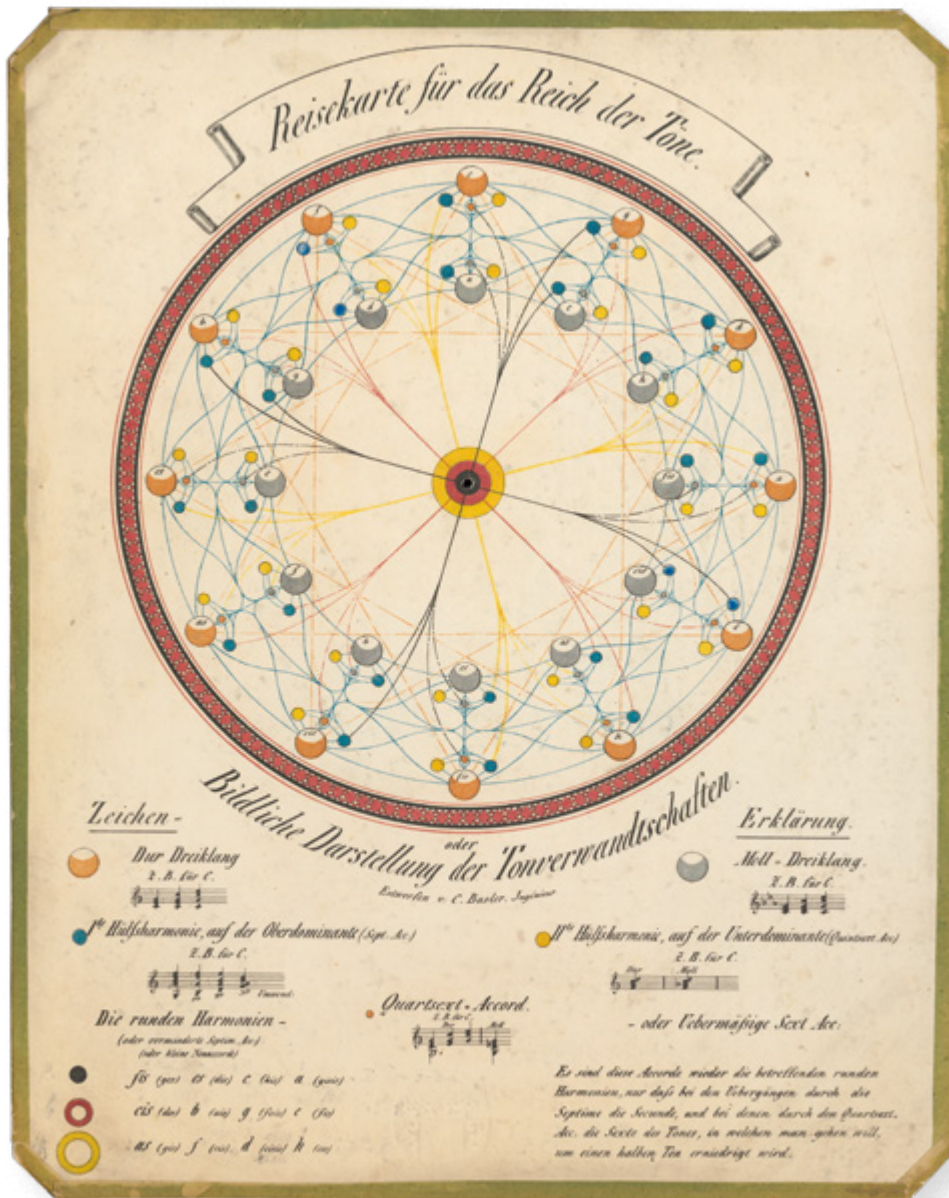 Reisekarte für das Reich der Töne.
Bildliche Darstellung der Tonverwandtschaften.
oder
Entworfen v. C. Basler. Ingenieur
Zeichen-
Erklärung.
Dur Dreiklang
z. B. für C.
Moll-Dreiklang.
z. B. für C.
Ite Hülfsharmonie, auf der Oberdominante (Sept. Acc.)
z. B. für C.
IIte Hülfsharmonie, auf der Unterdominante (Quintsext. Acc)
z. B. für C.
Dur Moll
Quartsext-Accord.
z. B. für C.
Dur Moll
Die runden Harmonien-
(oder verminderte Septim. Acc)
(oder kleine Nonaccorde)
- oder Uebermäßige Sext Acc:
fis (ges) es (dis) c (his) a (gisis)
cis (des) b (ais) g (fisis) e (fes)
as (gis) f (eis) d (cisis) h (ces)
Es sind diese Accorde wieder die betreffenden runden
Harmonien, nur daß bei den Uebergängen durch die
Septime die Secunde, und bei denen durch den Quartsext.
Acc. die Sexte des Tones, in welchen man gehen will,
um einen halben Ton erniedrigt wird.